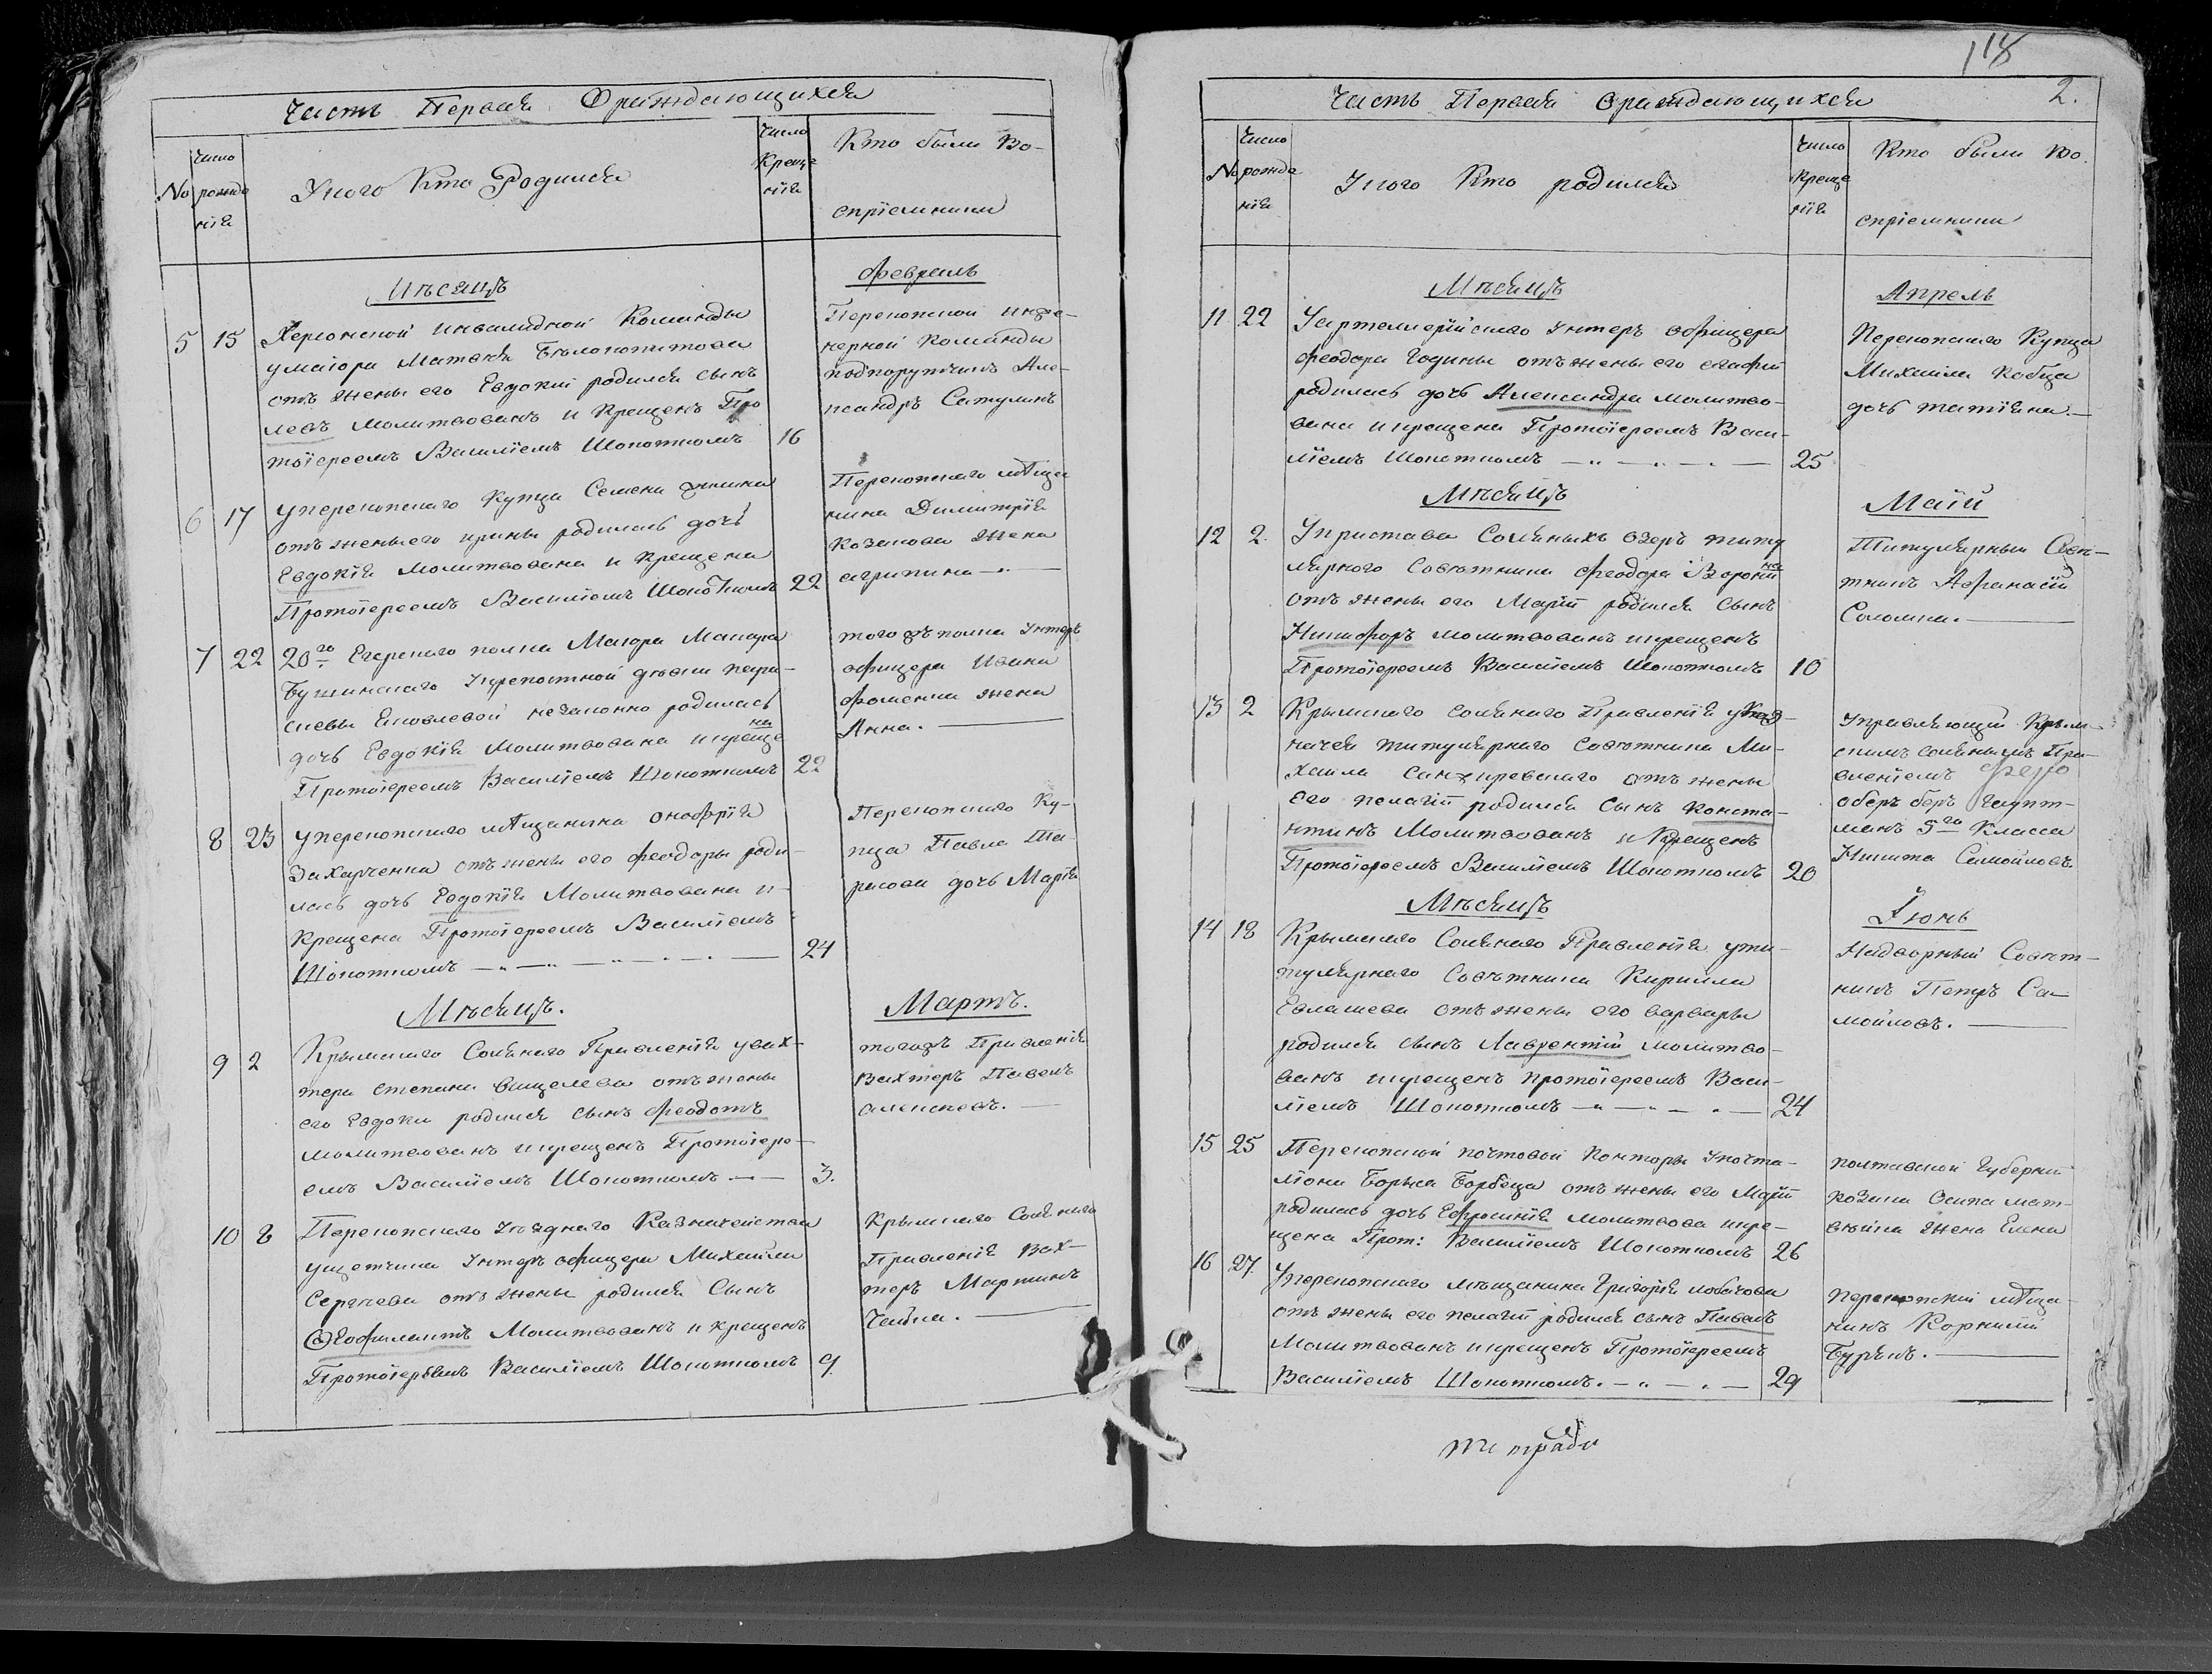 Часть Первая О раждающихся
No
Число рожде нія
У кого Кто Родился
Число Креще нія
Кто были Во-
спріемники
Мѣсяцъ
Февраль
5 15 Херсонской инвалидной Команды
у маіора Матвея Бѣлокопытова
отъ жены его Евдокіи родился сынъ
Левъ молитвованъ и Крещенъ Про
тоіереемъ Василіемъ Шокоткомъ 16
Перекопской инже-
нерной Команды
подпорутчикъ Але-
ксандръ Сатулинъ
6 17 У перекопскаго Купца Семена
отъ жены его ирины родилась дочь
Евдокія молитвована и крещена
Протоіереемъ Василіемъ Шокоткомъ 22
Перекопскаго мѣща
нина Димитрія
Козакова жена
агрипина
7 22 20го Егерскаго полка Маіора Макара
Бушинскаго У крепостной девки пара-
скевы Яковлевой незаконно родилась
дочь Евдокія Молитвована и креще
на
Протоіереемъ Василіемъ Шокоткомъ 22
того жъ полка Унтеръ
офицера Ивана
Фоменка жена
Анна.
8 23 У перекопскаго мѣщанина онофрія
Захарченка отъ жены его феодоры роди-
лась дочь Евдокія Молитвована и
Крещена Протоіереемъ Василіемъ
Шокоткомъ 24
Перекопскаго Ку-
пца Павла Та-
расова дочь Марія
Мѣсяцъ.
Мартъ.
9 2 Крымскаго Солянаго Правленія у вах-
тера степана Вищелева отъ жены
его Евдоки родился сынъ Феодотъ
молитвованъ и крещенъ Протоіере-
емъ Василіемъ Шокоткомъ 3.
тогожъ Правленія
Вахтеръ Павелъ
алексѣевъ.
10 8 Перекопскаго Уѣзднаго Казначейства
у щетчика Унтеръ офицера Михайла
Сергѣева отъ жены родился Сынъ
Ѳеофилактъ Молитвованъ и крещенъ
Протоіереемъ Василіемъ Шокоткомъ 9.
Крымскаго Солянаго
Правленія Вах-
теръ Мартинъ
Чайка.
118
Часть Первая О раждающихся 2.
No
Число рожде нія
У кого Кто родился
Число Креще нія
Кто были Во
спріемники
Мѣсяцъ
Апрель
11 22 У артиллерійскаго Унтеръ офицера
Феодора Годины отъ жены его агафіи
родилась дочь Александра молитво-
вана и крещена Протоіереемъ Васи-
ліемъ Шокоткомъ 25
Перекопскаго Купца
Михайла Кобца
дочь татіяна.
Мѣсяцъ
Маій
12 2. У пристава Соляныхъ озеръ титу
лярнаго Совѣтника Феодора Ворони
на
отъ жены его Маріи родился сынъ
Никифоръ молитвованъ и крещенъ
Протоіереемъ Василіемъ Шокоткомъ 10
Титулярный Совѣ-
тникъ Афанасій
Соломка.
13 2 Крымскаго солянаго Правленія у каз-
начея титулярнаго Совѣтника Ми-
хаила отъ жены
его пелагіи родился сынъ Конста-
нтинъ Молитвованъ и Крещенъ
Протоіереемъ Василіемъ Шокоткомъ 20
Управляющій Крым-
скимъ солянымъ Пра-
вленіемъ
оберъ беръ Гаупт-
манъ 5го Класса
Никита Самойловъ
Мѣсяцъ
Іюнь
14 18 Крымскаго Солянаго Правленія у ти-
тулярнаго Совѣтника Кирилла
Евлашева отъ жены его варвары
родился сынъ Лаврентій молитво-
ванъ и крещенъ протоіереемъ Васи-
ліемъ Шокоткомъ 24
Надворный Совѣт-
никъ Петръ Са-
мойловъ.
15 25 Перекопской почтовой Конторы У почта-
ліона Бориса Борбеца отъ жены его Маріи
родилась дочь Ефросинія молитвова и кре-
щена Прот: Василіемъ Шокоткомъ 26
полтавской Губерніи
козака Осипа мат-
вѣйка жена Елена
16 27. У перекопскаго мѣщанина Григорія лобачова
отъ жены его пелагіи родился сынъ Павелъ
Молитвованъ и крещенъ Протоіереемъ
Василіемъ Шокоткомъ. 29
перекопскій мѣща
нинъ Корнилій
Бурънъ.